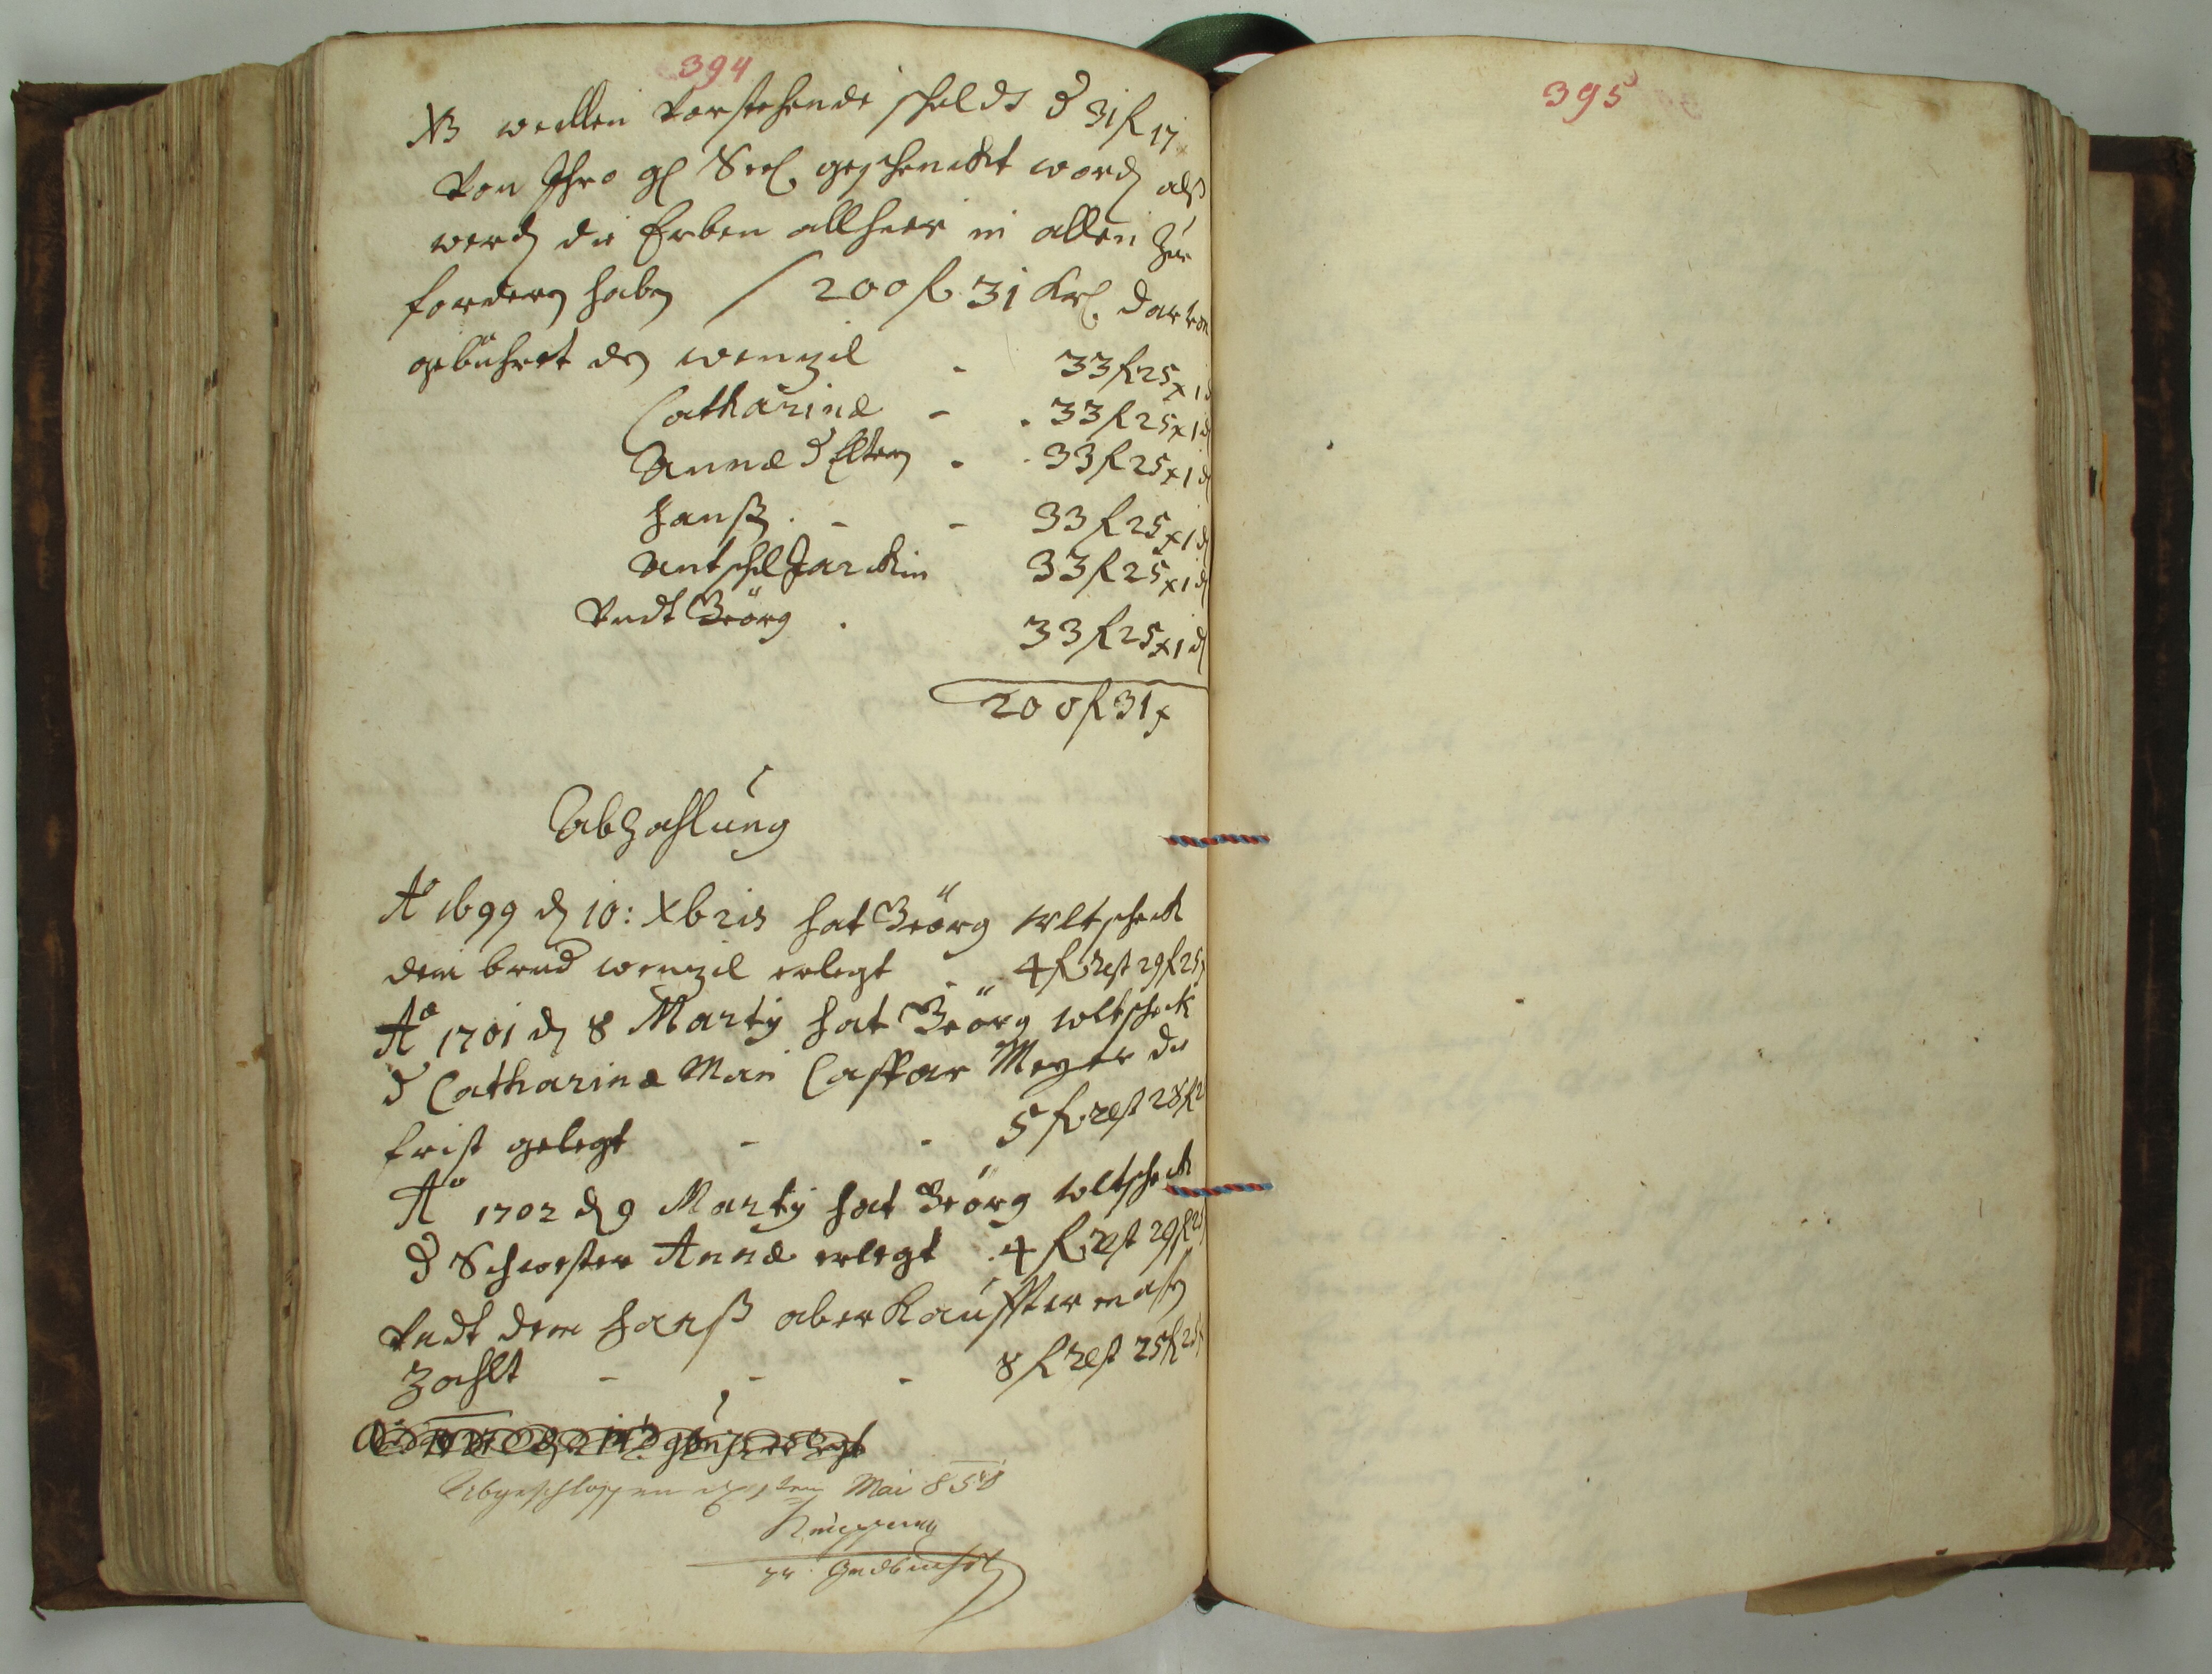 394
NB weillen vorstehende schuldt d 31 fl 17
von Ihro gl Excel. geschenckt word alß
werd die Erben allhier in allen zue
fordern haben / 200 fl 31 Krl. darvon
gebühret den wenzil - 33 fl 25 x 1 d
Catharinæ - . 33 fl 25 x 1 d
Annæ d Eltern - . 33 fl 25 x 1 d
Hanß . - - 33 fl 25 x 1 d
33 fl 25 x 1 d
Vndt Geörg . 33 fl 25 x 1 d
200 fl 31 x
Abzahlung
Ao 1699 d 10: Xbris hat Geörg Wltscheck
dem brud wenzil erlegt . . 4 fl rest 29 fl 25 x
Ao 1701 d 8 Marty hat Geörg wltscheck
d Catharinæ Man Caspar Meyer die
frist gelegt - - 5 fl rest 28 fl 2
Ao 1702 d 9 Marty hat Geörg wltscheck
d Schwester Annæ erlegt . 4 fl rest 29 fl 25
Vndt dem Hanß aber Kauffter maß
zahlt - - - 8 fl rest 25 fl 25
Abgeschlossen Mai 858
Grdbuchsf
395